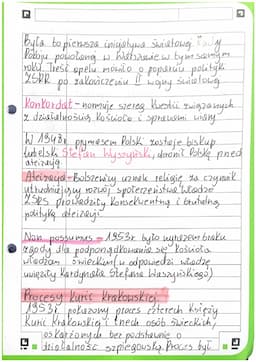 Była to pierwsza inicjatywa Światowej Rady
Pokoju powołanej w Warszawie w tym samym
roku. Treść apelu mówiło o poparciu polityki
ZSRR po zakończeniu II wojny światowej
Konkordat - normuje szereg kwestii związanych
z działalnością kościoła i sprawami wiary
W 1948r. prymasem Polski zostaje biskup
lubelski Stefan Wyszyński, bronił Polskę przed
ateizacją
Ateizacja - Bolszewicy uznali religię za czynnik
utrudniający rozwój społeczeństwa władze
ZSRS prowadziły konsekwentną i brutalną
politykę ateizacji
Non possumus - 1953r. było wyrazem braku
zgody dla podporządkowania się kościoła
władzom świeckim (w odpowiedzi władze
uwięziły kardynała Stefana Wyszyńskiego)
Procesy Kurii krakowskiej
1953r. pokazowy proces czterech księży
Kurii Krakowskiej i trzech osób świeckich,
oskarżonych bezpodstawnie o
działalność szpiegowską. Proces był